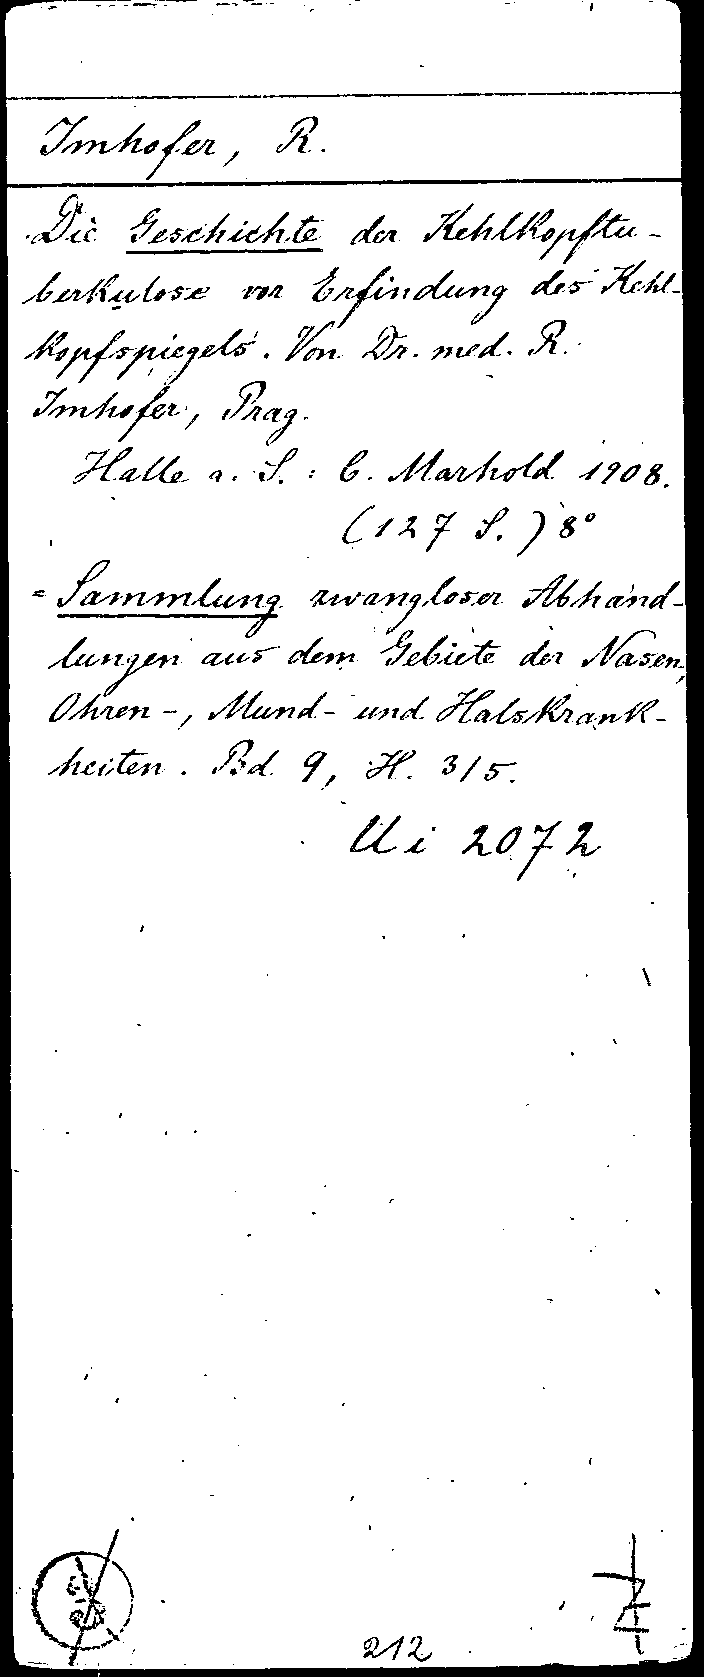 Imhofer, R.
Die Geschichte der Kehlkopftu-
berkulose vor Erfindung des Kehl-
kopfspiegels. Von Dr. med. R.
Imhofer, Prag.
Halle a. S. : C. Marhold 1908.
(127 S.) 8°
= Sammlung zwangloser Abhand-
lungen aus dem Gebiete der Nasen,
Ohren-, Mund- und Halskrank-
heiten. Bd 9, H. 3/5.
Ui 2072
212